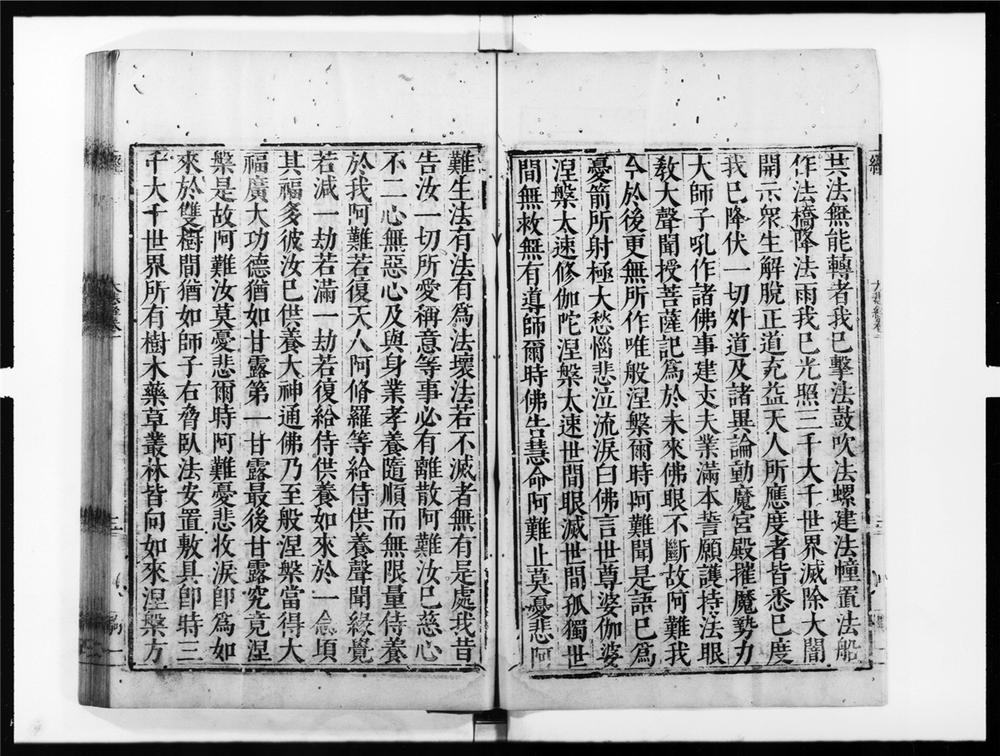 共法無能轉者我已擊法鼓吹法螺建法幢置法船
作法橋降法雨我已光照三千大千世界滅除大闇
開示眾生解脫正道充益天人所應度者皆悉已度
我已降伏一切外道及諸異論動魔宮殿摧魔勢力
大師子吼作諸佛事建丈夫業滿本誓願護持法眼
教大聲聞授菩薩記為於未來佛眼不斷故阿難我
今於後更無所作唯般涅槃爾時阿難聞是語已為
憂箭所射極大愁惱悲泣流淚白佛言世尊婆伽婆
涅槃太速修伽陀涅槃太速世間眼滅世間孤獨世
間無救無有導師爾時佛告慧命阿難止莫憂悲阿
難生法有法有為法壞法若不滅者無有是處我昔
告汝一切所愛稱意等事必有離散阿難汝已慈心
不二心無惡心及與身業孝養隨順而無限量侍養
於我阿難若復天人阿脩羅等給侍供養聲聞緣覺
若減一劫若滿一劫若復給侍供養如來於一念頃
其福多彼汝已供養大神通佛乃至般涅槃當得大
福廣大功德猶如甘露第一甘露最後甘露究竟涅
槃是故阿難汝莫憂悲爾時阿難憂悲收淚即為如
來於雙樹間猶如師子右脅臥法安置敷具即時三
千大千世界所有樹木藥草叢林皆向如來涅槃方